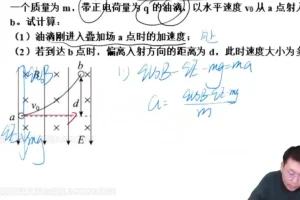 一个质量为 m，带正电荷量为 q 的油滴，以水平速度 v₀ 从 a 点射入
b。试计算：
（1）油滴刚进入叠加场 a 点时的加速度；
（2）若到达 b 点时，偏离入射方向的距离为 d，此时速度大小为多
B b
1) qv₀B - qE - mg = ma
a = (qv₀B - qE - mg) / m
qv₀B
v₀ d
a
qE mg E